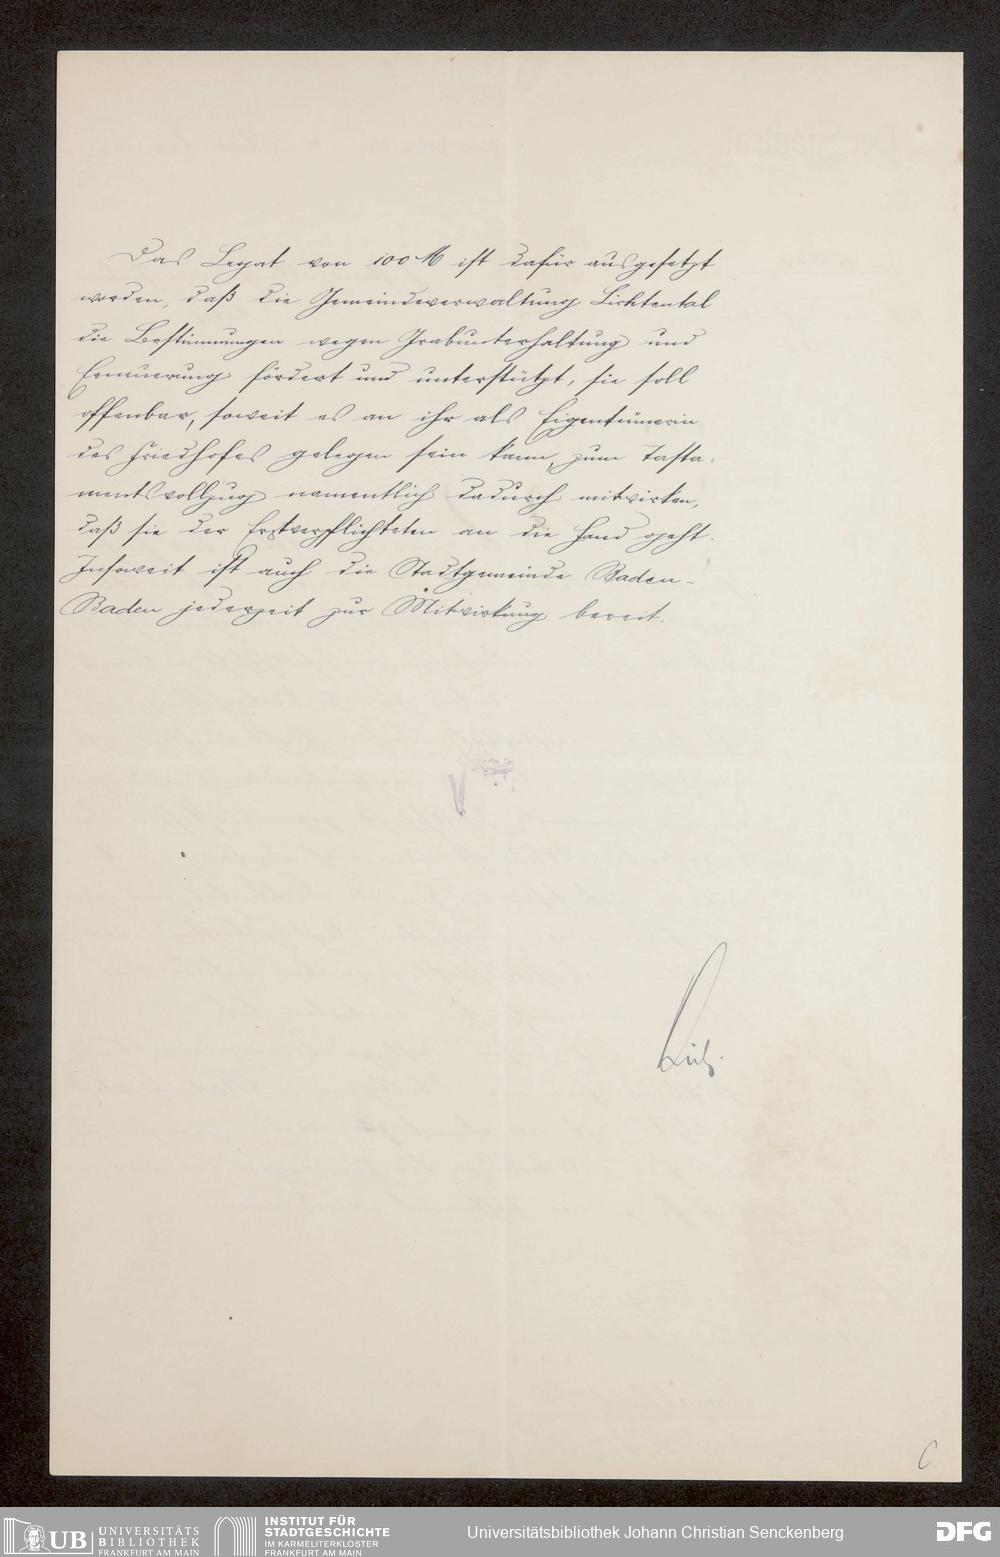 Das Legat von 100 M ist dafür ausgesetzt
worden, daß die Gemeindeverwaltung Lichtental
die Bestimmungen wegen Grabunterhaltung und
Erneuerung fördert und unterstützt, sie soll
offenbar, soweit es an ihr als Eigentümerin
des Friedhofes gelegen sein kann, zum Testa-
mentsvollzug namentlich dadurch mitwirken,
daß sie der Erstverpflichteten an die Hand geht.
Insoweit ist auch die Stadtgemeinde Baden-
Baden jederzeit zur Mitwirkung bereit.
C
UB UNIVERSITÄTS
BIBLIOTHEK
FRANKFURT AM MAIN
INSTITUT FÜR
STADTGESCHICHTE
IM KARMELITERKLOSTER
FRANKFURT AM MAIN
Universitätsbibliothek Johann Christian Senckenberg
DFG